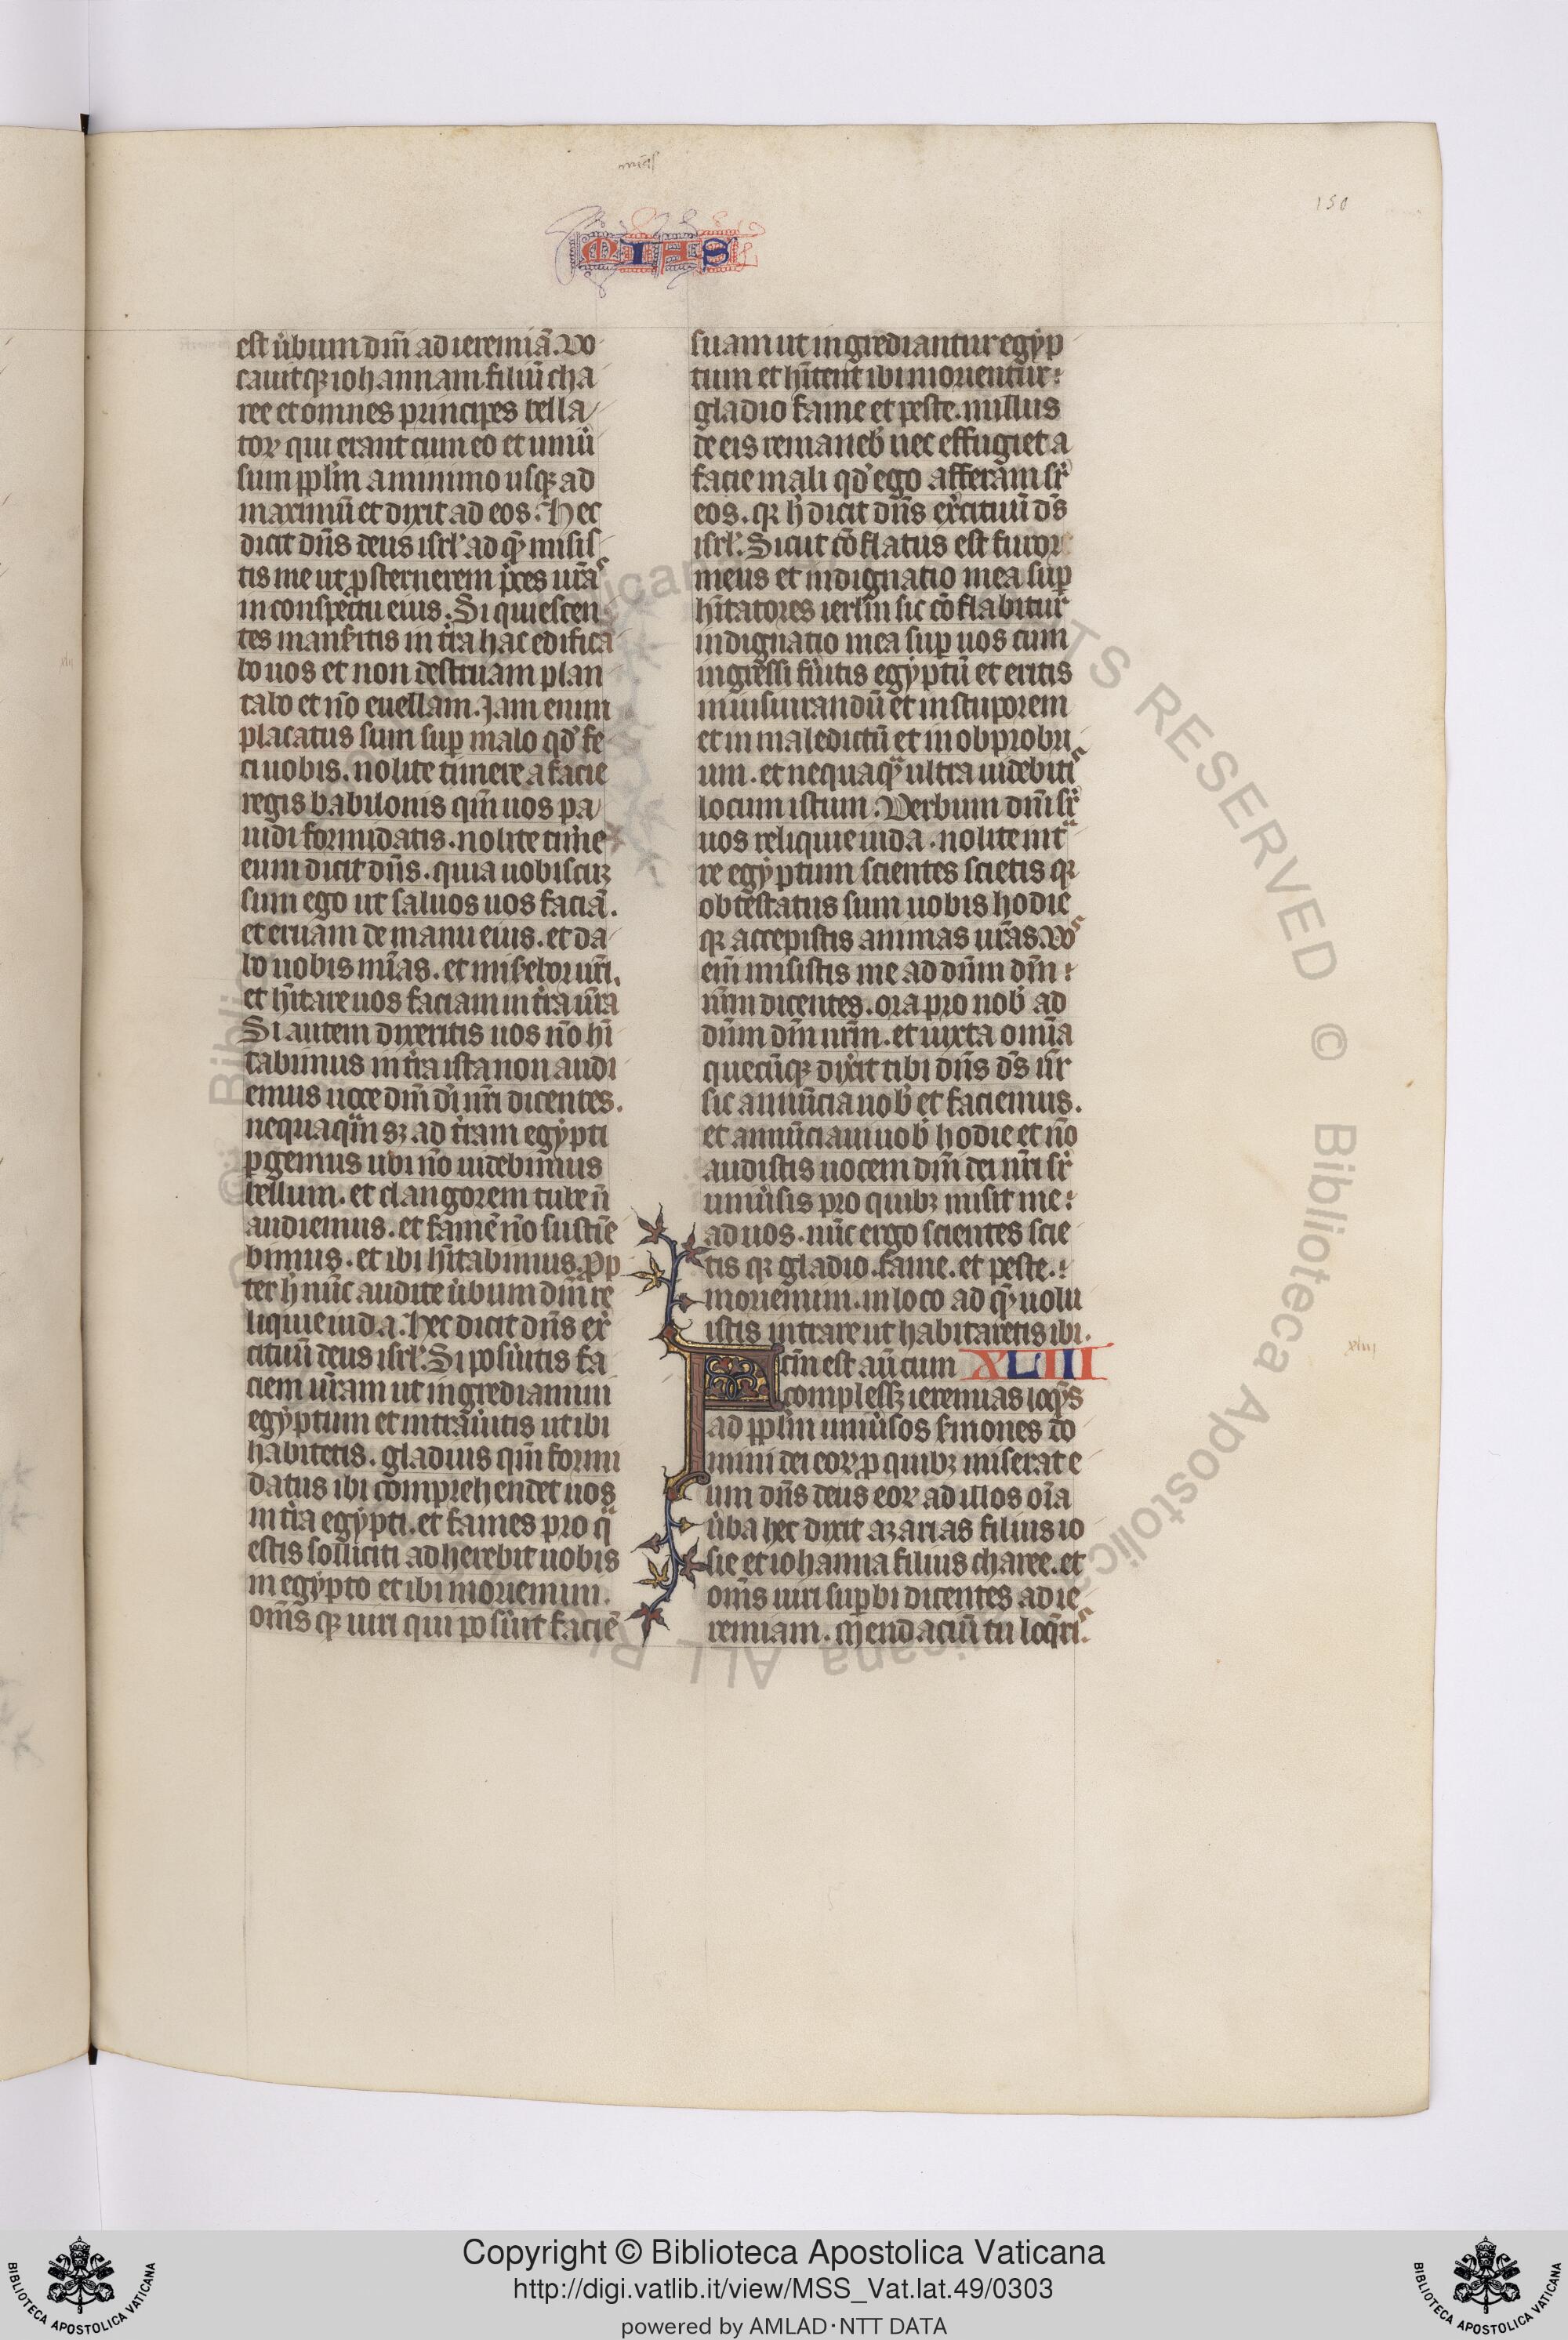 150
MIAS
est ůbum dn̄i ad ieremiā. Vo
cauitqꝫ iohannam filiū cha
ree et omnes principes bella
toꝝ qui erant cum eo et uniů
sum ppl̄m a minimo usqꝫ ad
maximū et dixit ad eos. Hec
dicit dn̄s deus isrl̓ ad qͫ misis
tis me ut ꝓsternerem p̄ces ur̄aˢ
in conspectu eius. Si quiescen
tes mans̓itis in tͥra hac edifica
bo uos et non destruam plan
tabo et nō euellam. Jam enim
placatus sum suꝑ malo qd̓ fe
ci uobis. nolite timere a facie
regis babilonis qm̄ uos pa
uidi formidatis. nolite time̓
eum dicit dn̄s. quia uobiscuꝫ
sum ego ut saluos uos faciā.
et eruam de manu eius. et da
bo uobis mīas. et mis̓eboꝛ ur̄i.
et hītare uos faciam in tͥra ur̄a
Si autem dixeritis uos nō hī
tabimus in tͥra ista non audi
emus uoce dn̄i d̓i nr̄i dicentes.
nequaqͣm sꝫ ad tͥram egypti
ꝑgemus ubi nō uidebimus
bellum. et clangorem tube n̄
audiemus. et famē nō sustīe
bimus. et ibi hītabimus. ꝓp
ter h̓ nūc audite ůbum dn̄i re
liquie iuda. Hec dicit dn̄s ex̓
cituū deus isrl̓. Si posůitis fa
ciem ur̄am ut ingrediamini
egyptum et intraůitis ut ibi
habitetis. gladius qm̄ formi
datus ibi comprehendet uos
in tͥra egypti. et fames pro qͣ
estis solliciti adherebit uobis
in egypto et ibi moriemini.
om̄s qꝫ uiri qui posůīt faciē
suam ut ingrediantur egyp
tum et hītent ibi morientur:
gladio fame et peste. nullus
de eis remaneb̓ nec effugiet a
facie mali qd̓ ego afferam sr̓
eos. qꝛ h̓ dicit dn̄s ex̓cituū ds̄
isrl̓. Sicut cōflatus est furoꝛ
meus et indignatio mea suꝑ
hītatores ierl̄m sic cōflabitur
indignatio mea suꝑ uos cum
ingressi fůitis egyptū et eritis
in iusiurandū et in stuporem
et in maledictū et in obprobri
um. et nequaqͣ ultra uidebitiˢ
locum istum. Verbum dn̄i sr̓
uos reliquie iuda. nolite intͣ
re egyptum scientes scietis qꝛ
obtestatus sum uobis hodie
qꝛ accepistis animas ur̄as. Voˢ
em̄ misistis me ad dn̄m dm̄:
nr̄m dicentes. ora pro nob̓ ad
dn̄m dm̄ nr̄m. et iuxta om̄ia
quecūqꝫ dix̓it tibi dn̄s ds̄ nr̄
sic annūcia nob̓ et faciemus.
et annūciaui uob̓ hodie et nō
audistis uocem dn̄i dei nr̄i sr̓
uniůsis pro quibꝫ misit me:
ad uos. nūc ergo scientes scie
tis qꝛ gladio. fame. et peste.:
moriemini. in loco ad qͫ uolu
istis intrare ut habitaretis ibi.
Fctm̄ est aūt cum XLIII
complessꝫ ieremias loqͥs
ad ppl̄m uniůsos s̓mones do
mini dei eoꝝ ꝓ quibꝫ miserat e
um dn̄s deus eoꝝ ad illos oīa
ůba hec dixit azarias filius io
sie et iohanna filius charee. et
om̄s uiri suꝑbi dicentes ad ie
remiam. mendaciū tu loq̄riˢ.
xliii
© Biblioteca Apostolica Vaticana ALL RIGHTS RESERVED
Copyright © Biblioteca Apostolica Vaticana
http://digi.vatlib.it/view/MSS_Vat.lat.49/0303
powered by AMLAD·NTT DATA
BIBLIOTECA APOSTOLICA VATICANA
BIBLIOTECA APOSTOLICA VATICANA